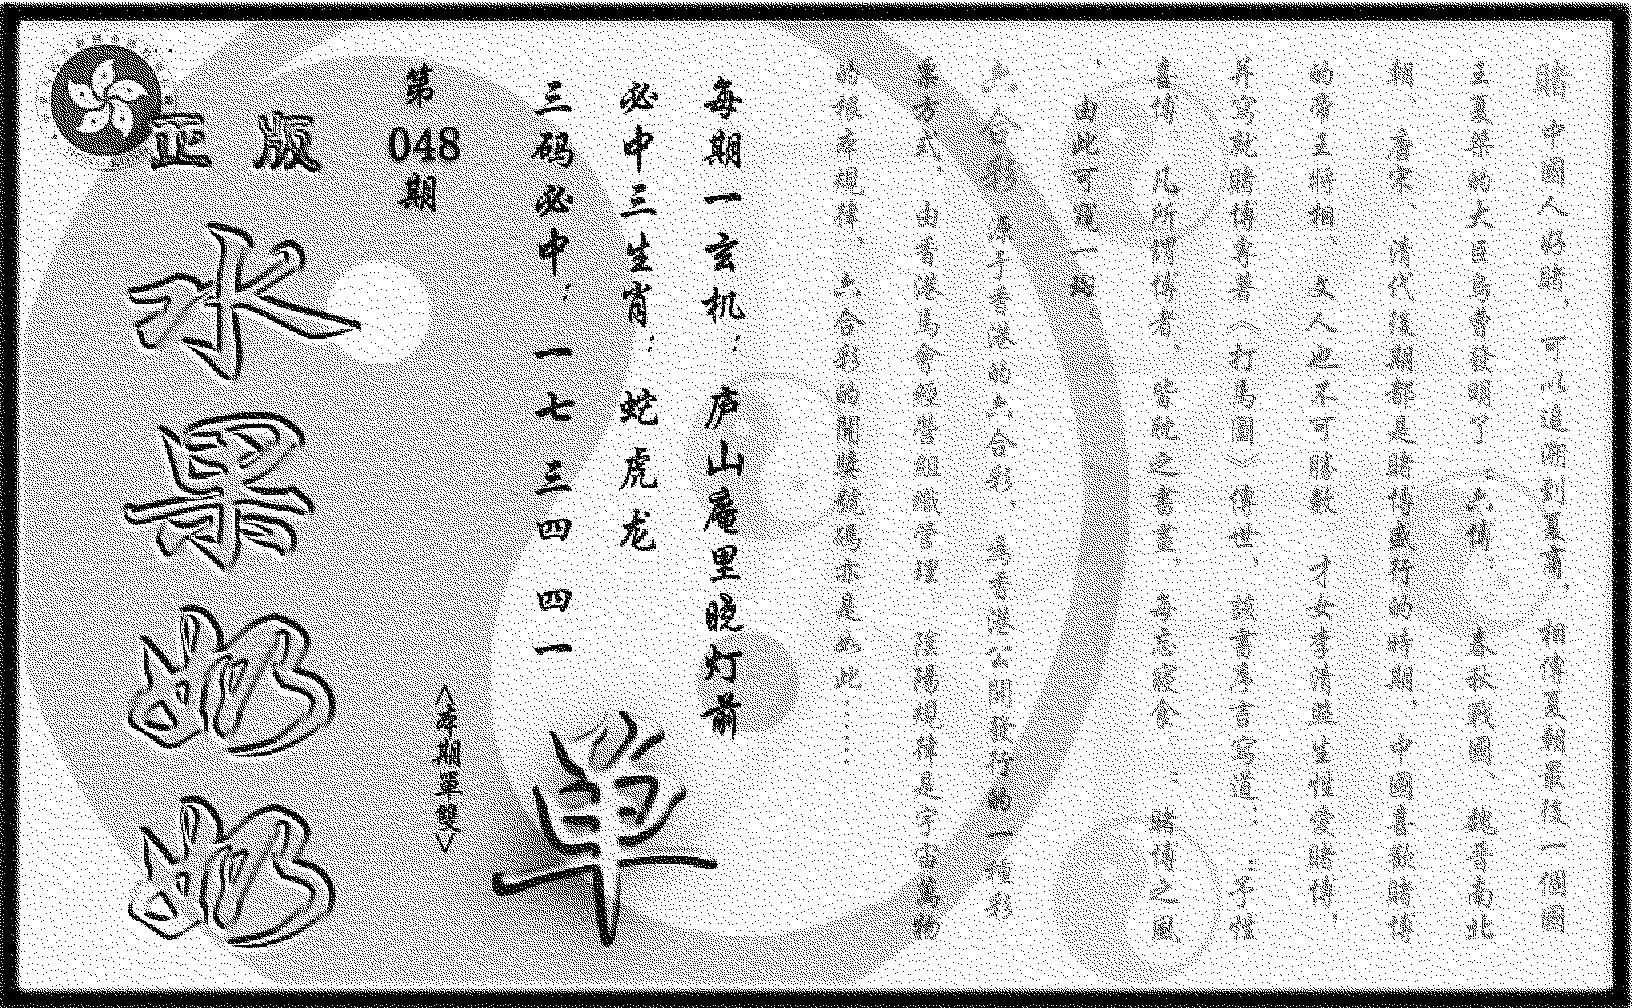 賭，中國人好賭，可以追溯到夏商，相傳夏朝最後一個國
王夏桀的大臣烏曹發明了「六博」 春秋戰國、魏晉南北
期 唐宋、清代後期都是賭博盛行的時期，中國喜歡賭博
的帝王將相 文人也不可勝數 才女李清照生性愛賭博，
并寫就賭博專著〈打馬圖〉傳世、該書序言寫道，：予性
喜博 凡所謂博者，皆耽之晝夜，每忘寢食 ：賭博之風
，由此可窺一斑
六合彩，源于香港的六合彩，為香港公開發行的一種彩
票方式，由香港馬會經營組織管理 陰陽規律是宇宙萬物
的根本規律，六合彩的開獎號碼亦是如此······
每期一玄机：庐山庵里晓灯前
必中三生肖：蛇虎龙
三码必中：一七 三四 四一
單
<每期單雙>
第048期
正版
水果奶奶